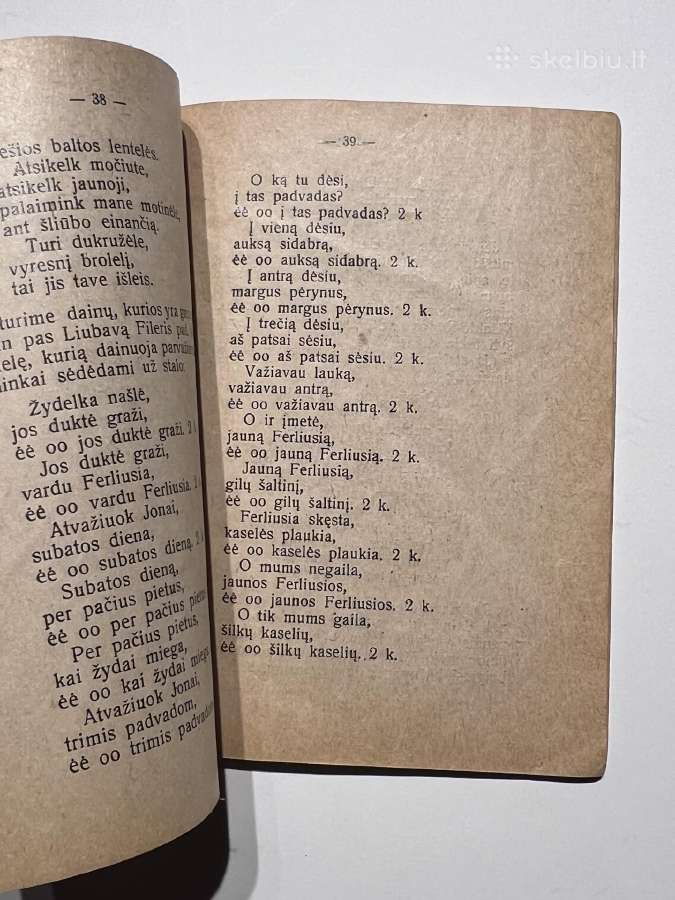 skelbiu.lt
— 38 —
ešios baltos lentelės.
Atsikelk močiute,
atsikelk jaunoji,
palaimink mane
ant šliūbo einančią.
Turi dukružėle,
vyresnį brolelį,
tai jis tave išleis.
turime dainų, kurios yra
pas Liubavą Fileris
elę, kurią dainuoja
inkai sėdėdami už stalo:
Žydelka našlė,
jos duktė graži,
ėė oo jos duktė graži. 2
Jos duktė graži,
vardu Ferliusia,
ėė oo vardu Ferliusia.
Atvažiuok Jonai,
subatos diena,
ėė oo subatos dieną. 2
Subatos dieną,
per pačius pietus,
ėė oo per pačius pietus
Per pačius pietus,
kai žydai miega,
ėė oo kai žydai miega
Atvažiuok Jonai,
trimis padvadom,
ėė oo trimis
— 39 —
O ką tu dėsi,
į tas padvadas?
ėė oo į tas padvadas? 2 k
Į vieną dėsiu,
auksą sidabrą,
ėė oo auksą sidabrą. 2 k.
Į antrą dėsiu,
margus pėrynus,
ėė oo margus pėrynus. 2 k.
Į trečią dėsiu,
aš patsai sėsiu,
ėė oo aš patsai sėsiu. 2 k.
Važiavau lauką,
važiavau antrą,
ėė oo važiavau antrą. 2 k.
O ir įmetė,
jauną Ferliusią,
ėė oo jauną Ferliusią. 2 k.
Jauną Ferliusią,
gilų šaltinį,
ėė oo gilų šaltinį. 2 k.
Ferliusia skęsta,
kaselės plaukia,
ėė oo kaselės plaukia. 2 k.
O mums negaila,
jaunos Ferliusios,
ėė oo jaunos Ferliusios. 2 k.
O tik mums gaila,
šilkų kaselių,
ėė oo šilkų kaselių. 2 k.